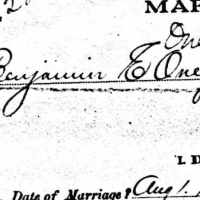 2
MAR
One
Benjamin E One
I D
Date of Marriage? Aug 1.